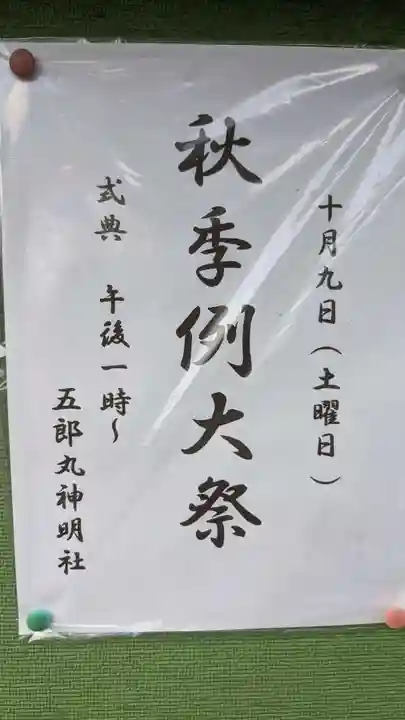 十月九日(土曜日)
秋季例大祭
式典 午後一時～
五郎丸神明社